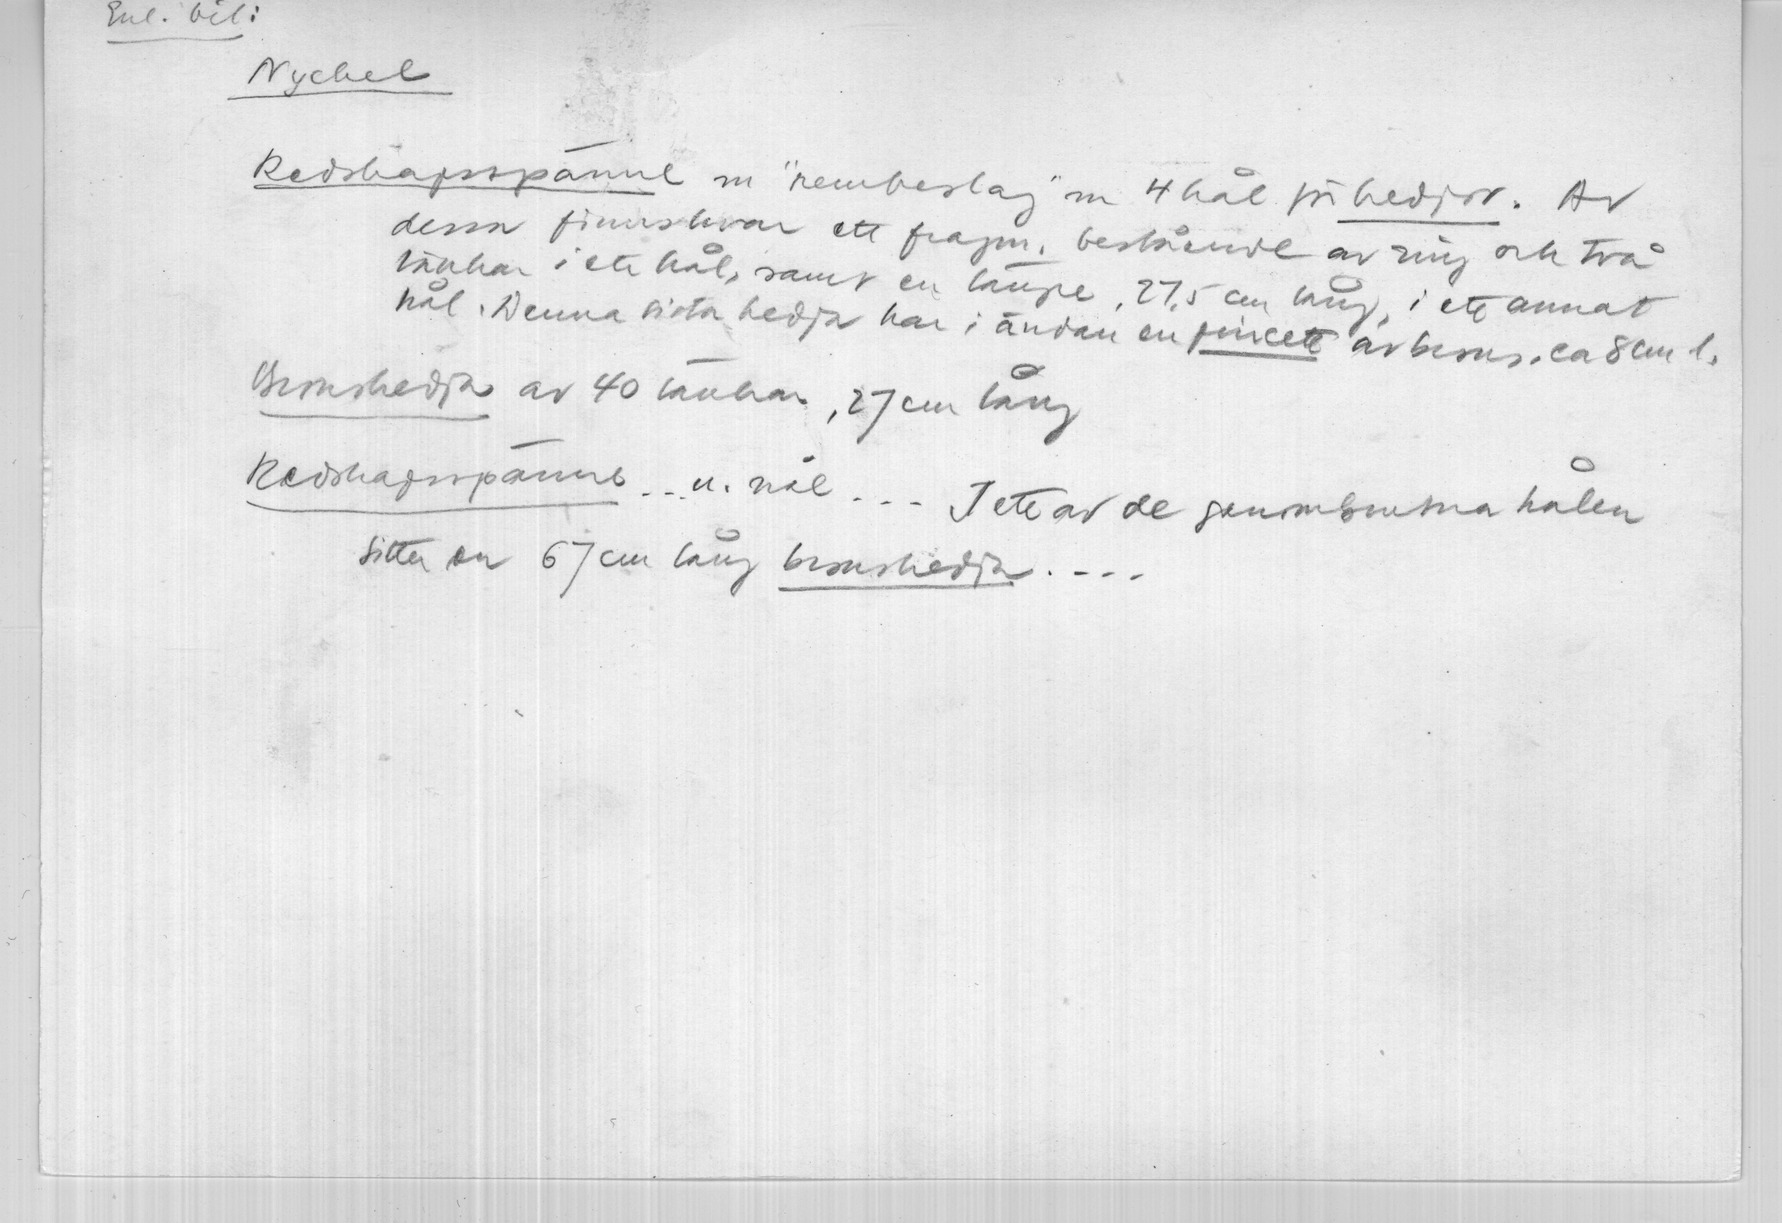 Enl. bil:
Nyckel
Redskapsspänne m "rembeslag" m 4 hål för kedjor. Av
dessa finns kvar ett fragm. bestående av ring och två
länkar i ett hål, samt en längre, 27,5 cm lång, i ett annat
hål. Denna sista kedja har i ändan en pincett av brons. ca 8 cm l.
Bronskedja av 40 länkar, 27 cm lång
Redskapsspänne ... u. nål ... I ett av de genombrutna hålen
sitter en 67 cm lång bronskedja. ...